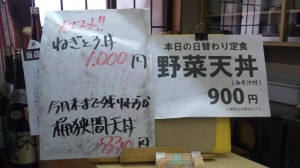 ねぎとろ丼
1,000円
今月末まで
桶狭間天丼
830円
本日の日替わり定食
野菜天丼
(みそ汁付)
900円